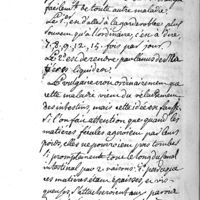 facilem.t de toute autre maladie.
Le 1.er, en d'aller à la garderobe plus
souvent qu'à l'ordinaire, c'en à dire
7. 8. 9. 12. 15. fois par jour.
Le 2.e en de rendre par l'anus des Ma
tieres liquides.
Le vulgaire croit ordinairement que
cette maladie vient du relachement
des intestins, mais cette idée en fausse.
Si l'on fait attention que quand les
matieres fécales agiroient par leur
poids, elles ne pourroient pas tomber
si promptement tout le long du canal
intestinal pour 2. raisons: 1.° parceque
les matieres étant épaisses, et vis-
queuses, s'attacheroient aux parois